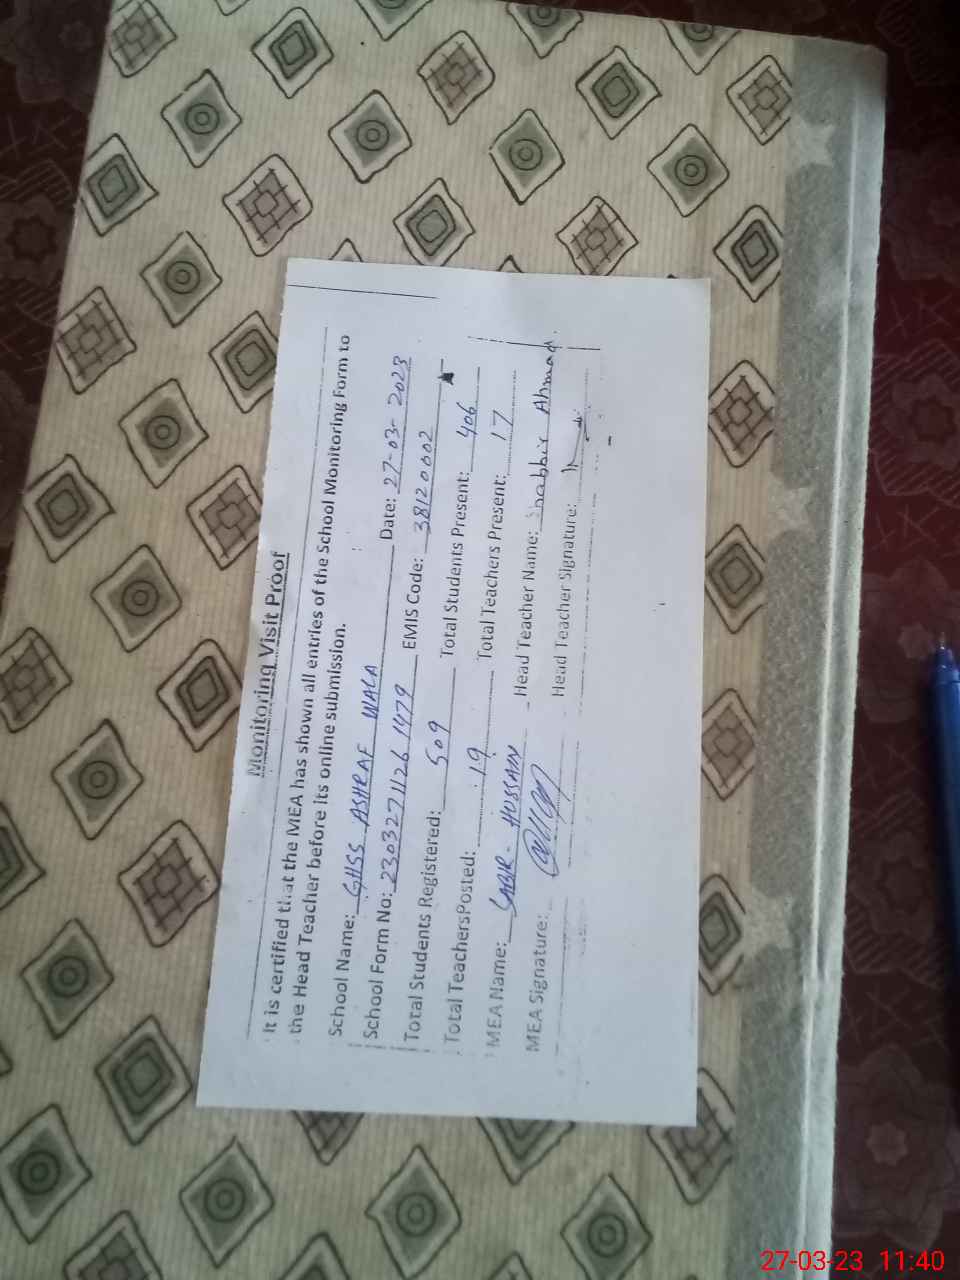 Monitoring Visit Proof
It is certified that the MEA has shown all entries of the School Monitoring Form to
the Head Teacher before its online submission.
School Name: GHSS ASHRAF WALA Date: 27-03-2023
School Form No: 2303271126 1479 EMIS Code: 38120002
Total Students Registered: 509 Total Students Present: 406
Total TeachersPosted: 19 Total Teachers Present: 17
MEA Name: SABIR - HUSSAIN Head Teacher Name: Shabbir Ahmad
MEA Signature: Head Teacher Signature:
27-03-23 11:40